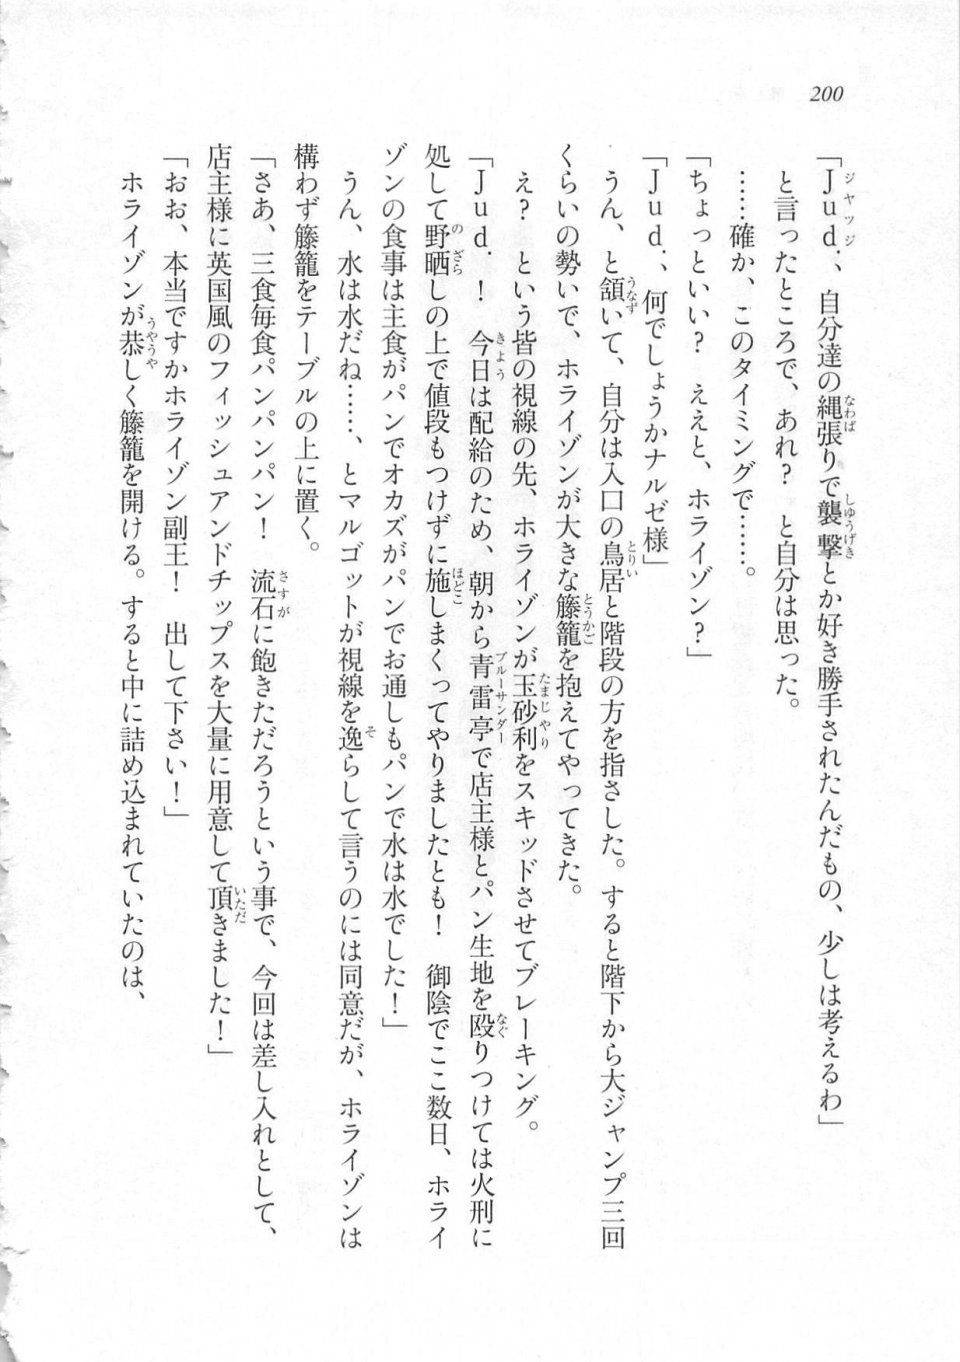 200
「Jud.、自分達の縄張りで襲撃とか好き勝手されたんだもの、少しは考えるわ」
と言ったところで、あれ?　と自分は思った。
……確か、このタイミングで……。
「ちょっといい?　ええと、ホライゾン?」
「Jud.、何でしょうかナルゼ様」
うん、と頷いて、自分は入口の鳥居と階段の方を指さした。すると階下から大ジャンプ三回
くらいの勢いで、ホライゾンが大きな籐籠を抱えてやってきた。
え?　という皆の視線の先、ホライゾンが玉砂利をスキッドさせてブレーキング。
「Jud.!　今日は配給のため、朝から青雷亭で店主様とパン生地を殴りつけては火刑に
処して野晒しの上で値段もつけずに施しまくってやりましたとも!　御陰でここ数日、ホライ
ゾンの食事は主食がパンでオカズがパンでお通しもパンで水は水でした!」
うん、水は水だね……、とマルゴットが視線を逸らして言うのには同意だが、ホライゾンは
構わず籐籠をテーブルの上に置く。
「さあ、三食毎食パンパンパン!　流石に飽きただろうという事で、今回は差し入れとして、
店主様に英国風のフィッシュアンドチップスを大量に用意して頂きました!」
「おお、本当ですかホライゾン副王!　出して下さい!」
ホライゾンが恭しく籐籠を開ける。すると中に詰め込まれていたのは、